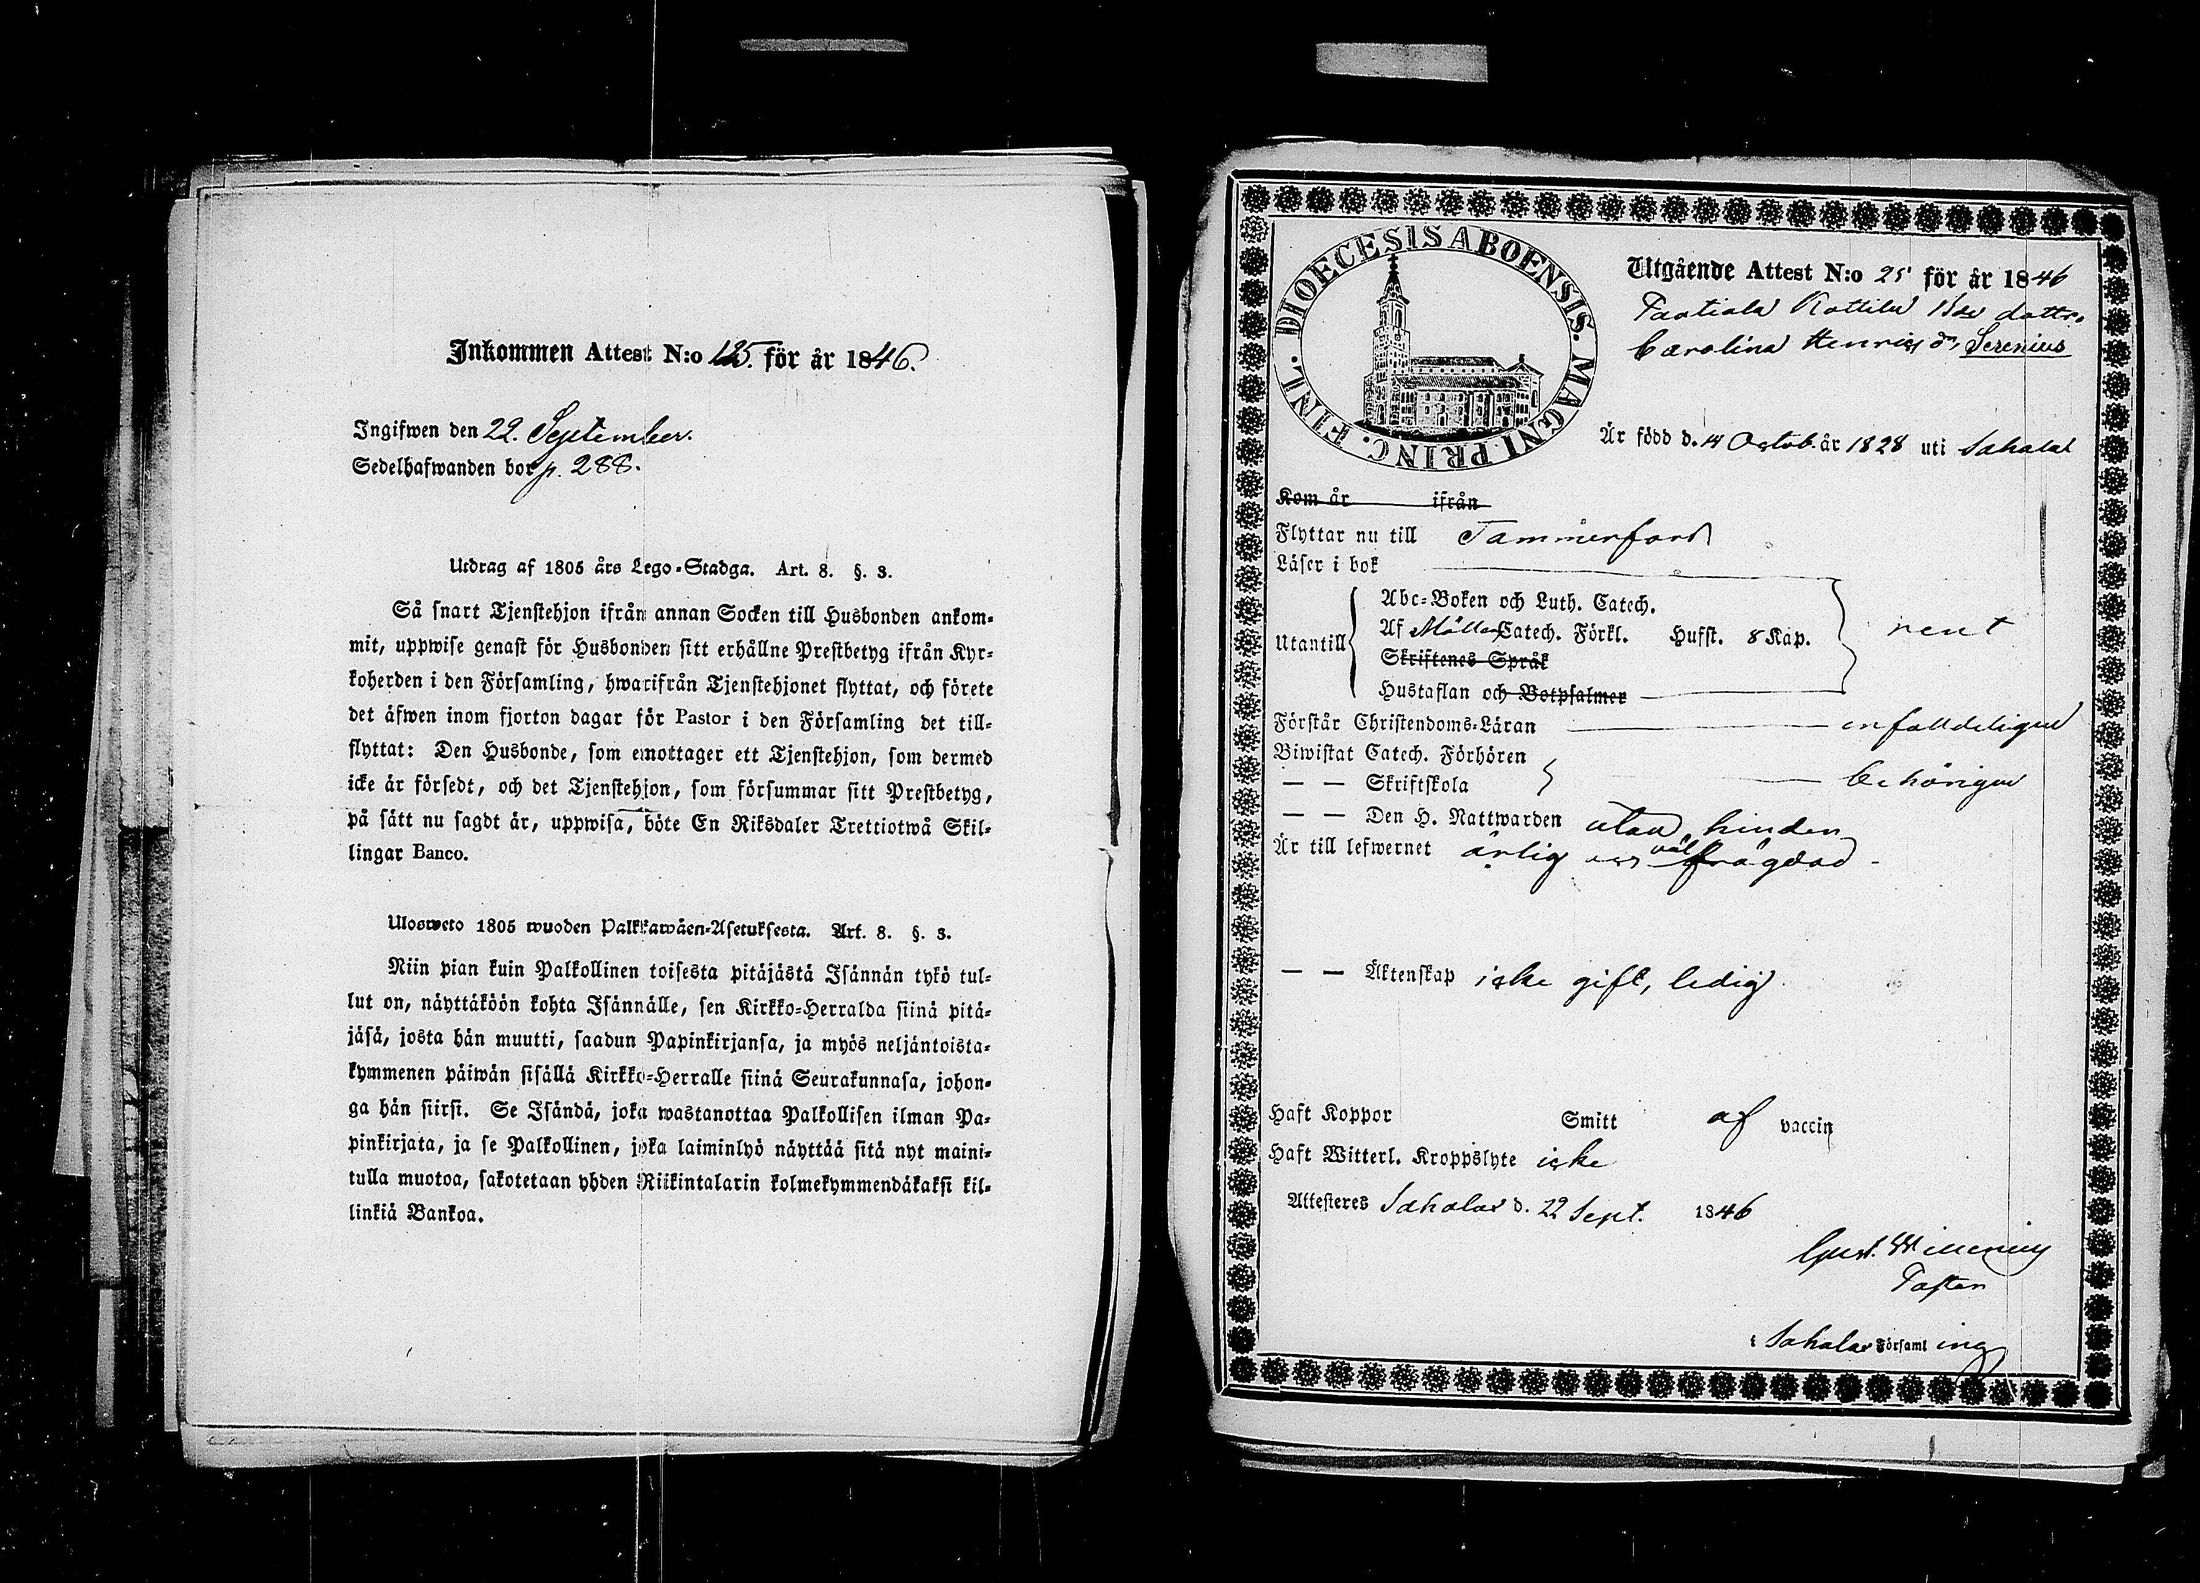 Inkommen Attest N:o 125. för år 1846.
Ingifwen den 22. September.
Sedelhafwanden bor p. 288.
Utdrag af 1805 års Lego-Stadga. Art. 8. §. 3.
Så snart Tjenstehjon ifrån annan Socken till Husbonden ankom-
mit, uppwise genast för Husbonden sitt erhållne Prestbetyg ifrån Kyr-
koherden i den Församling, hwarifrån Tjenstehjonet flyttat, och förete
det äfwen inom fjorton dagar för Pastor i den Församling det till-
flyttat: Den Husbonde, som emottager ett Tjenstehjon, som dermed
icke är försedt, och det Tjenstehjon, som försummar sitt Prestbetyg,
på sätt nu sagdt är, uppwisa, böte En Riksdaler Trettiotwå Skil-
lingar Banco.
Ulosweto 1805 wuoden Palkkawäen-Asetuksesta. Art. 8. §. 3.
Niin pian kuin Palkollinen toisesta pitäjästä Isännän tykö tul-
lut on, näyttäköön kohta Isännälle, sen Kirkko-Herralda siinä pitä-
jäsä, josta hän muutti, saadun Papinkirjansa, ja myös neljäntoista-
kymmenen päiwän sisällä Kirkko-Herralle siinä Seurakunnasa, johon-
ga hän siirsi. Se Isändä, joka wastanottaa Palkollisen ilman Pa-
pinkirjata, ja se Palkollinen, joka laiminlyö näyttää sitä nyt maini-
tulla muotoa, sakotetaan yhden Riikintalarin kolmekymmendäkaksi kil-
linkiä Bankoa.
DIOECESIS ABOENSIS. MAGNI PRINC. FINL.
Utgående Attest N:o 25 för år 1846
dottr.
Carolina Henrics dr Serenius
Är född d. 14 Octob. år 1828 uti Sahalax
Kom år ifrån
Flyttar nu till Tammerfors
Läser i bok
Utantill
Abc-Boken och Luth. Catech.
Af Möllers Catech. Förkl. Hufst. 8 Kap.
Skriftenes Språk
Hustaflan och Botpsalmer
rent
Förstår Christendoms-Läran enfalldeligen
Biwistat Catech. Förhören
— — Skriftskola behörigen
— — Den H. Nattwarden utan hinder
Är till lefwernet ärlig och väl frägdad
— — Äktenskap icke gift, ledig
Haft Koppor Smitt af vaccin
Haft Witterl. Kroppslyte icke
Attesteres Sahalax d. 22 Sept. 1846
Gust.
Pastor
i Sahalax Församling